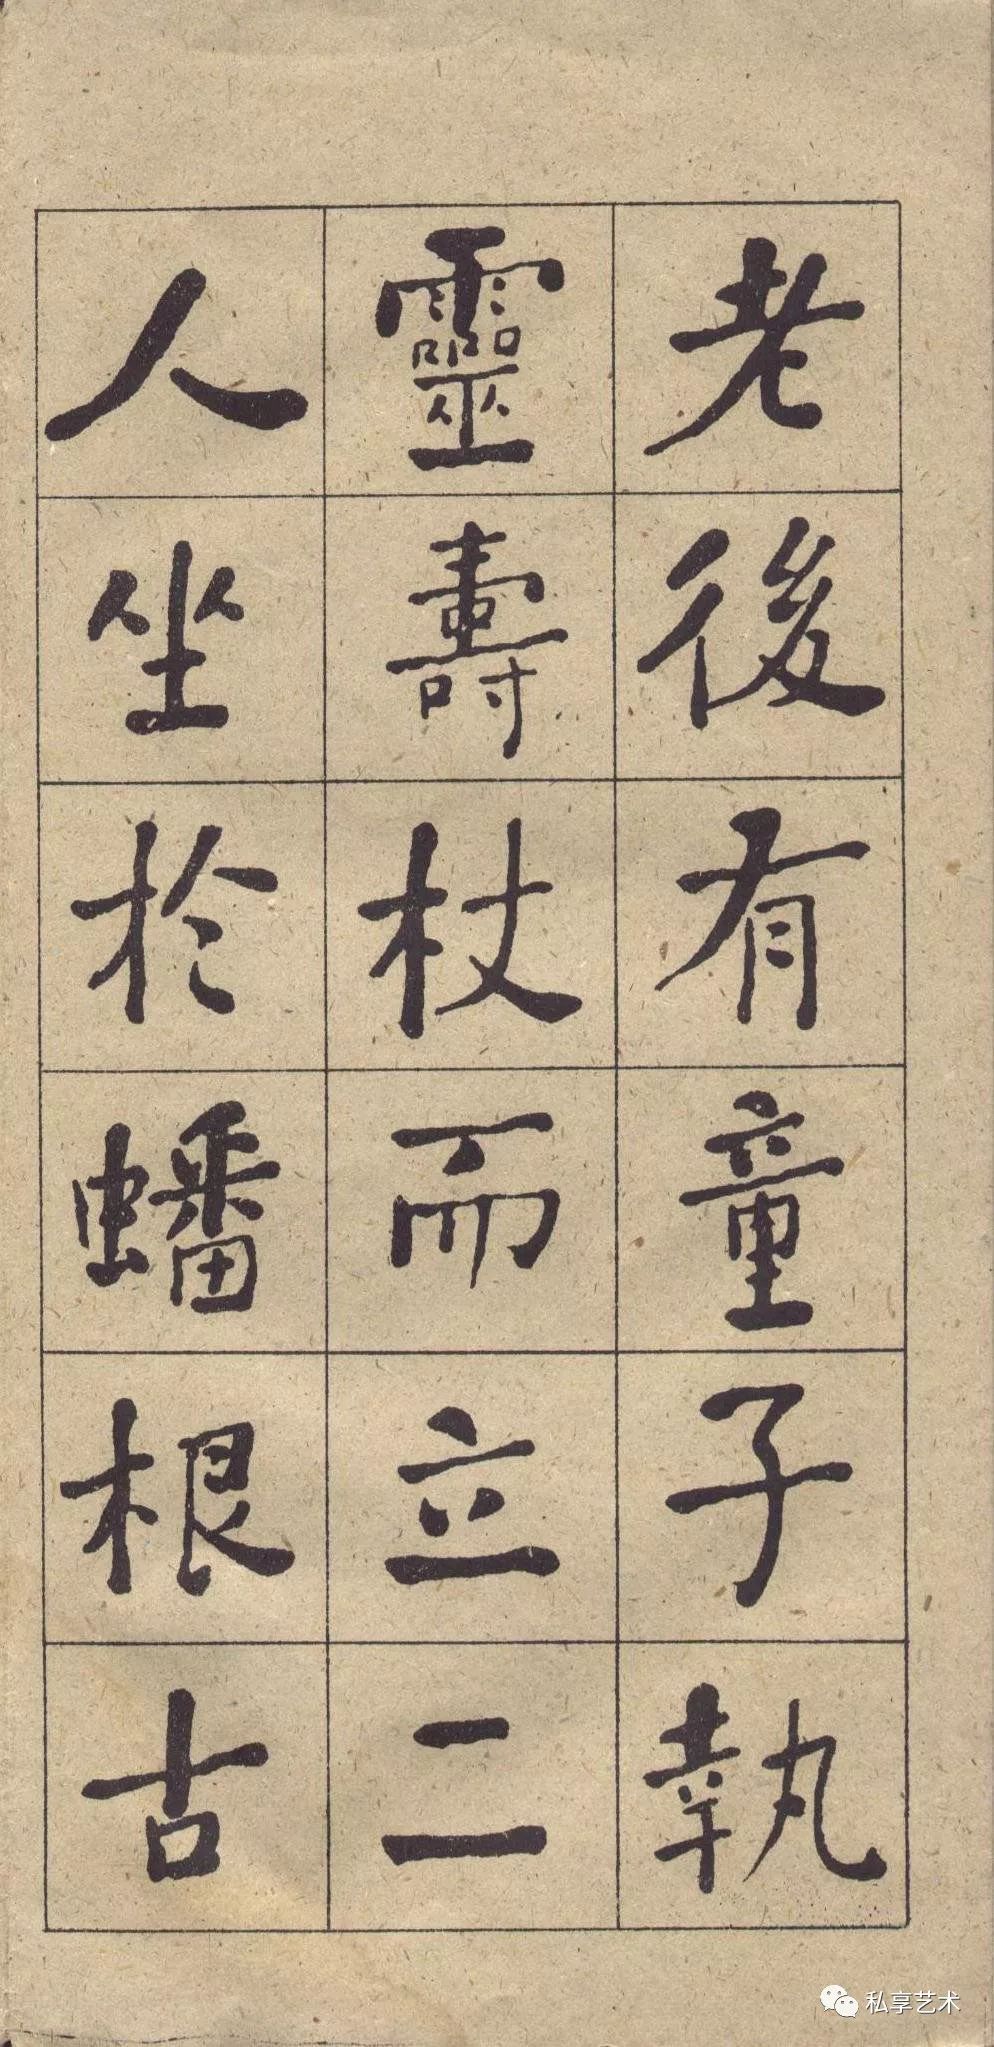 老後有童子執
靈壽杖而立二
人坐於蟠根古
私享艺术